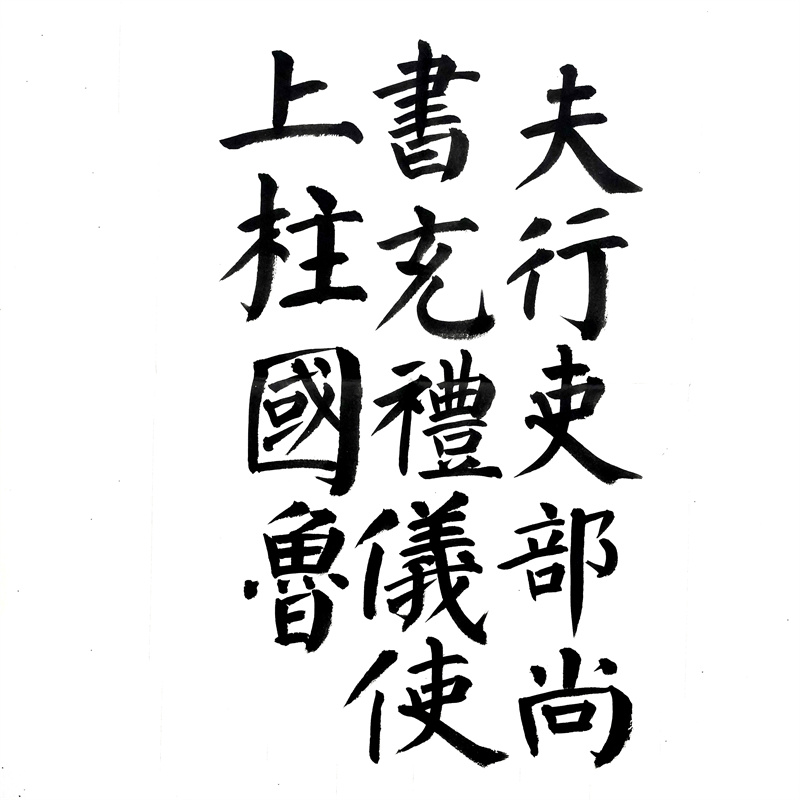 夫行吏部尚
書充禮儀使
上柱國魯